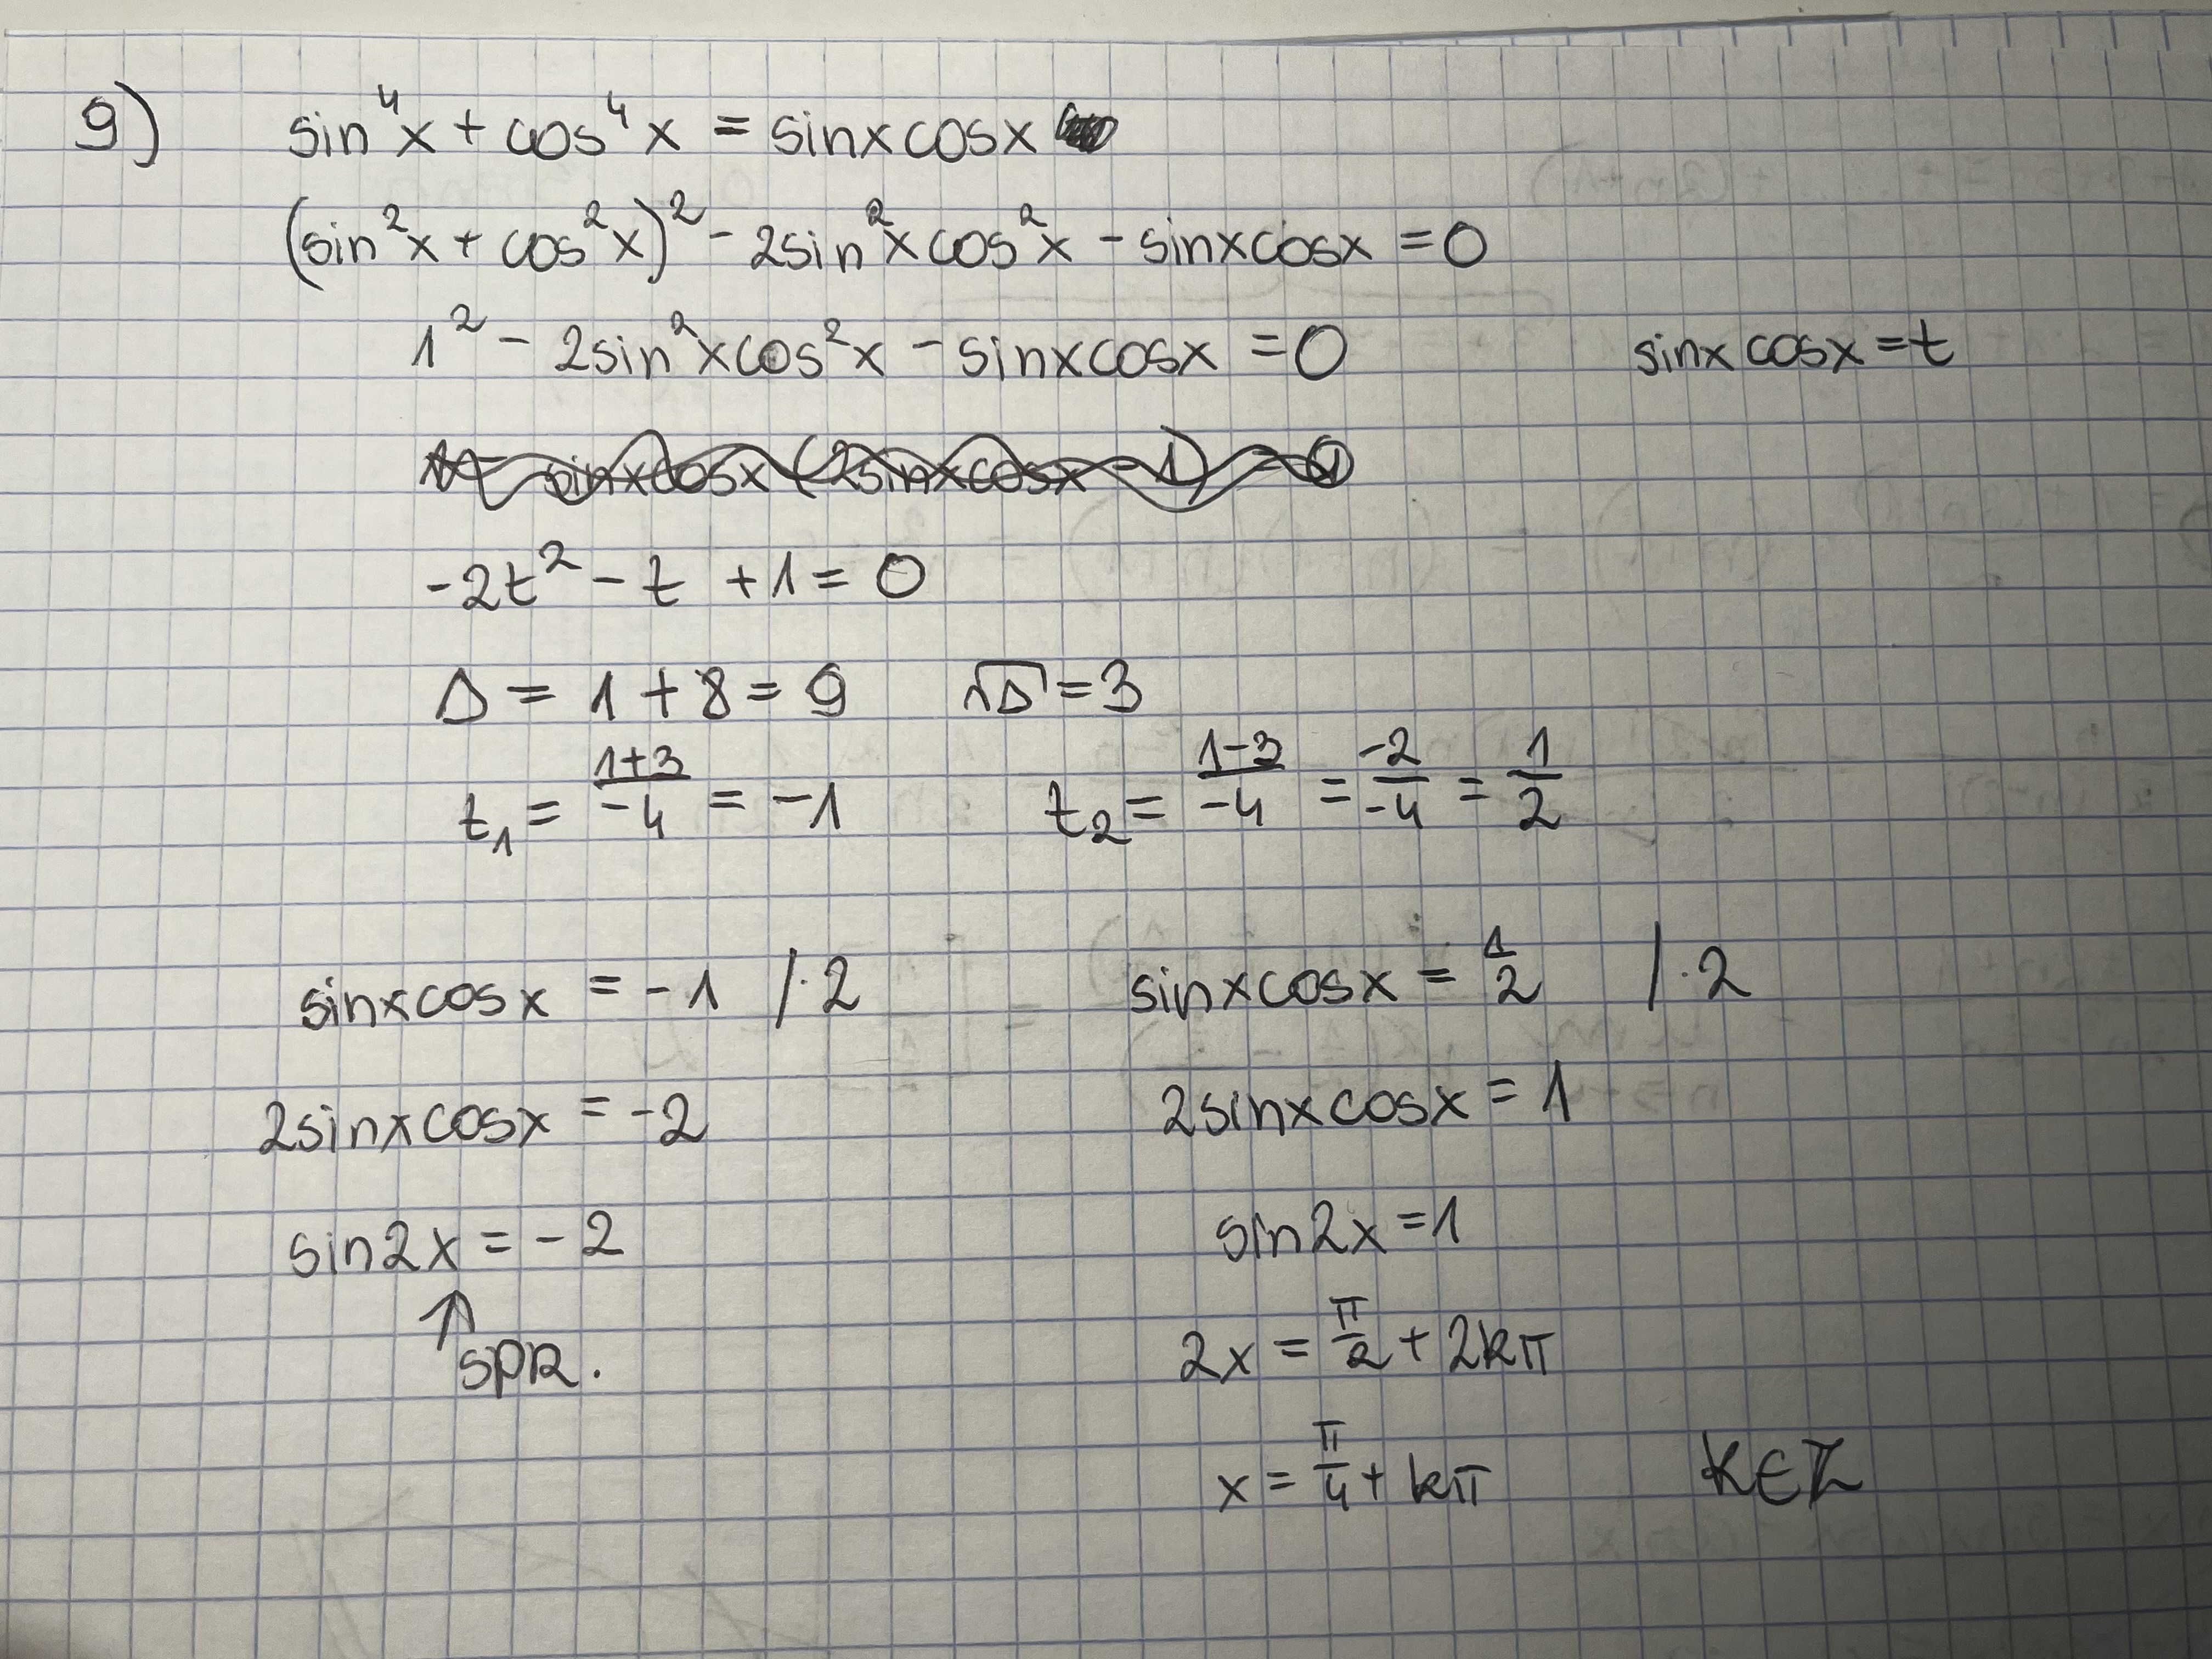 9) sin⁴x + cos⁴x = sinxcosx
(sin²x + cos²x)² - 2sin²xcos²x - sinxcosx = 0
1² - 2sin²xcos²x - sinxcosx = 0 sinxcosx = t
sinxcosx (2sinxcosx - 1)
-2t² - t + 1 = 0
Δ = 1 + 8 = 9 √Δ = 3
t₁ = (1+3)/(-4) = -1 t₂ = (1-3)/(-4) = (-2)/(-4) = 1/2
sinxcosx = -1 /·2 sinxcosx = 1/2 /·2
2sinxcosx = -2 2sinxcosx = 1
sin2x = -2 sin2x = 1
↑ SPR. 2x = π/2 + 2kπ
x = π/4 + kπ k∈Z